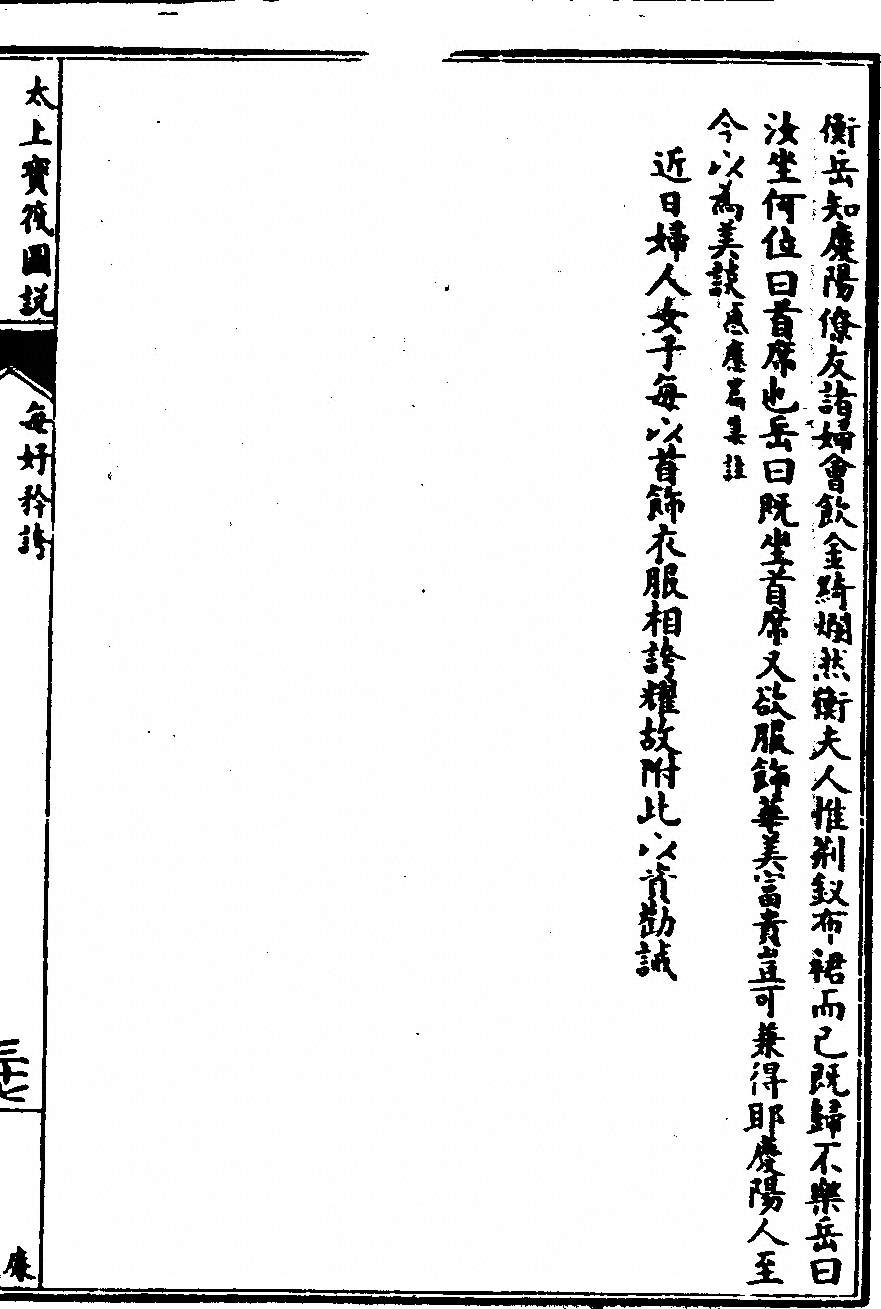 衡岳知慶陽僚友諸婦會飲金綺爛然衡夫人惟荊釵布裙而已既歸不樂岳曰
汝坐何位曰首席也岳曰既坐首席又欲服飾華美富貴豈可兼得耶慶陽人至
今以為美談感應篇集註
近日婦人女子每以首飾衣服相誇耀故附此以資勸誡
太上寶筏圖説
每好矜誇
三十七
廉